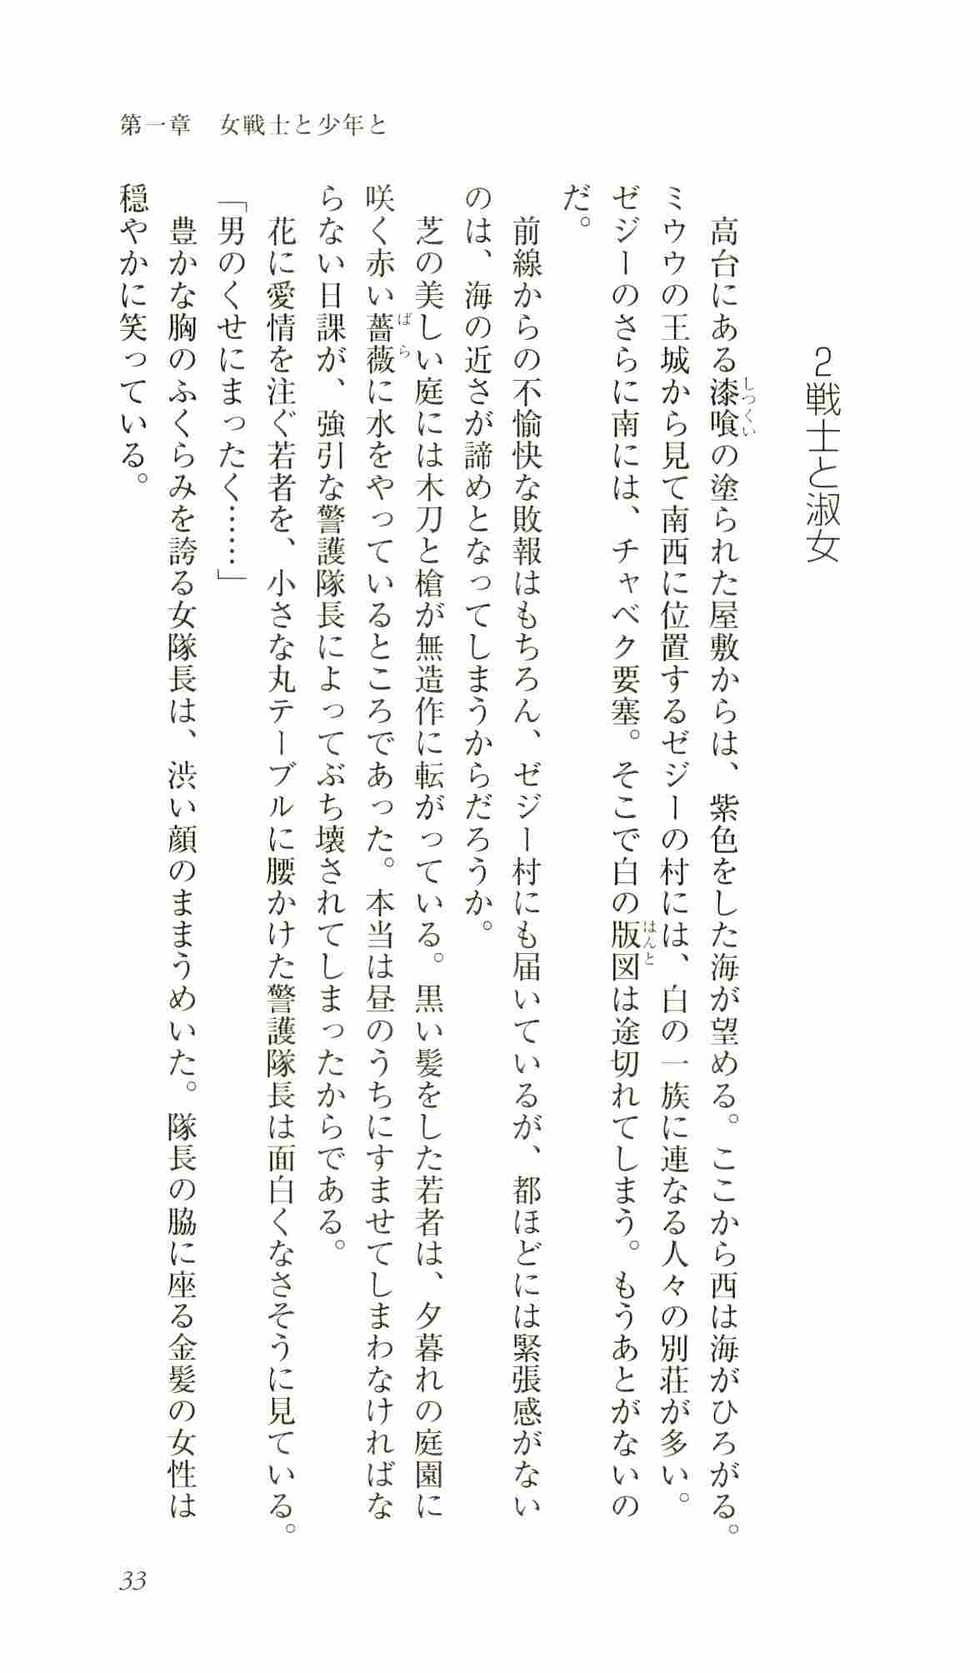 第一章　女戦士と少年と
2 戦士と淑女
　高台にある漆喰の塗られた屋敷からは、紫色をした海が望める。ここから西は海がひろがる。
ミウウの王城から見て南西に位置するゼジーの村には、白の一族に連なる人々の別荘が多い。
ゼジーのさらに南には、チャベク要塞。そこで白の版図は途切れてしまう。もうあとがないの
だ。
　前線からの不愉快な敗報はもちろん、ゼジー村にも届いているが、都ほどには緊張感がない
のは、海の近さが諦めとなってしまうからだろうか。
　芝の美しい庭には木刀と槍が無造作に転がっている。黒い髪をした若者は、夕暮れの庭園に
咲く赤い薔薇に水をやっているところであった。本当は昼のうちにすませてしまわなければな
らない日課が、強引な警護隊長によってぶち壊されてしまったからである。
　花に愛情を注ぐ若者を、小さな丸テーブルに腰かけた警護隊長は面白くなさそうに見ている。
「男のくせにまったく……」
　豊かな胸のふくらみを誇る女隊長は、渋い顔のままうめいた。隊長の脇に座る金髪の女性は
穏やかに笑っている。
しつくい
はんと
ばら
33